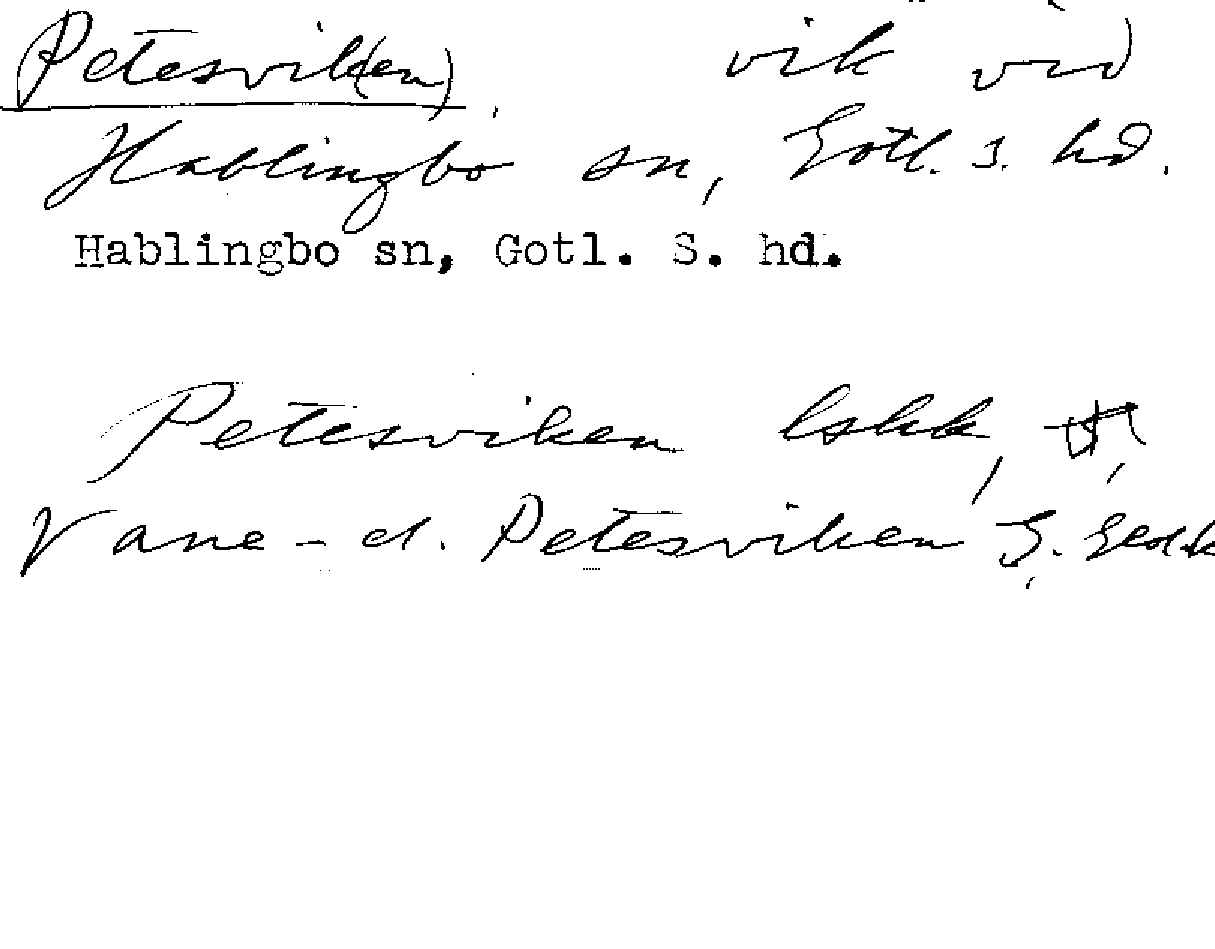 Petesvik(en). vik vid
Hablingbo sn, Gotl. S. hd.
Hablingbo sn, Gotl. S. hd.
Petesviken
Vane- el. Petesviken G.